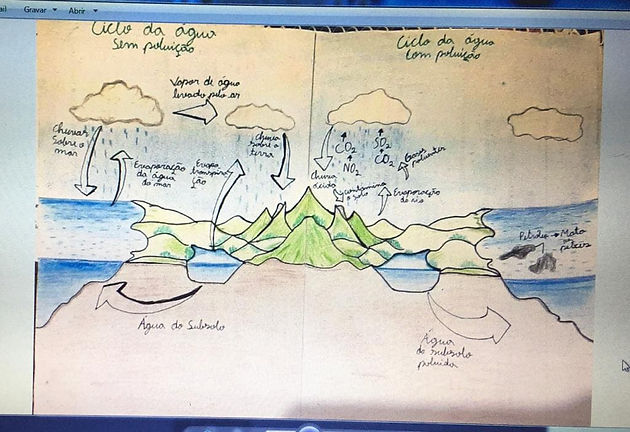 Gravar
Abrir
Ciclo da água
Sem poluição
Ciclo da água
Com poluição
Vapor de água
levado pelo ar
Chuvas
Sobre o
mar
Evaporação
da água
do mar
Evapo
transpira
ção
Chuva
sobre a
terra
CO2
NO2
SO2
CO2
Gases
poluentes
Chuva
ácida
contamina
o solo
Evaporação
do rio
Petróleo → Mata
peixes
Água do Subsolo
Água
do subsolo
poluída